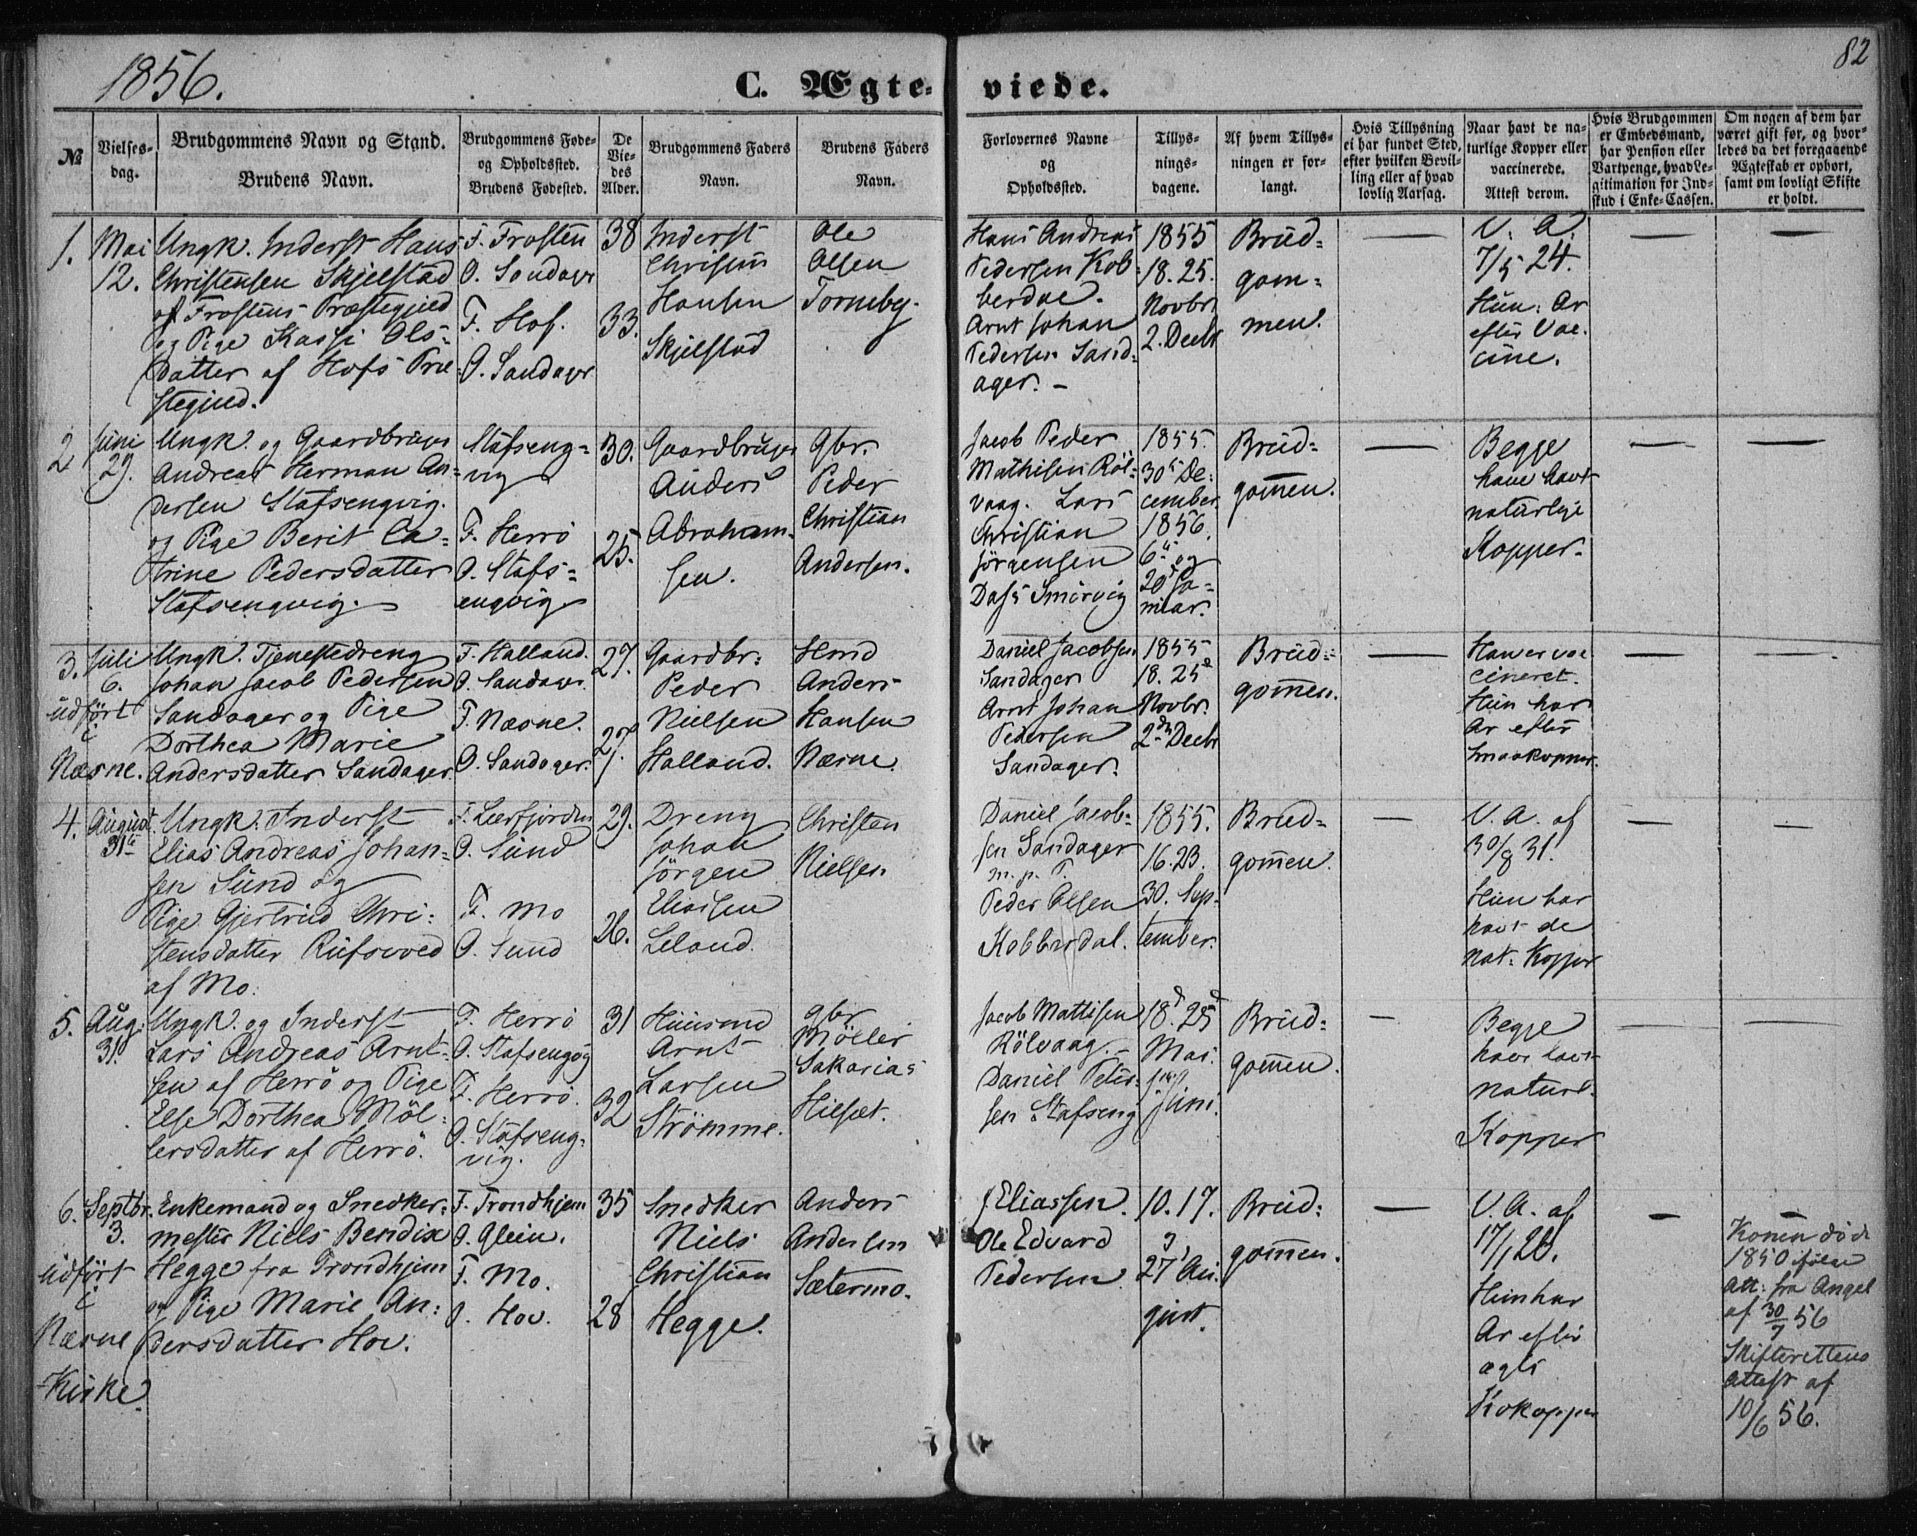 1856.
C. Ægte-
viede.
82
№
Vielses-
dag.
Brudgommens Navn og Stand.
Brudens Navn.
Brudgommens Føde-
og Opholdssted.
Brudens Fødested.
De
Vie-
des
Alder.
Brudgommens Faders
Navn.
Brudens Faders
Navn.
Forlovernes Navne
og
Opholdssted.
Tillys-
nings-
dagene.
Af hvem Tillys-
ningen er for-
langt.
Hvis Tillysning
ei har fundet Sted,
efter hvilken Bevil-
ling eller af hvad
lovlig Aarsag.
Naar havt de na-
turlige Kopper eller
vaccinerede.
Attest derom.
Hvis Brudgommen
er Embedsmand,
har Pension eller
Vartpenge, hvad Le-
gitimation for Ind-
skud i Enke-Cassen.
Om nogen af dem har
været gift før, og hvor-
ledes da det foregaaende
Ægteskab er ophørt,
samt om lovligt Skifte
er holdt.
1.
Mai
12.
Ungk. Inderst Hans
Christensen Skjelstad
af Frostens Præstegjeld
og Pige Kassi Ols-
datter af Hofs Præ-
stegjeld.
F. Frosten
O. Sandager
F. Hof.
O. Sandager
38
33.
Inderst
Christen
Hansen
Skjelstad
Ole
Olsen
Torneby.
Hans Andreas
Pedersen Kob-
berdal.
Arnt Johan
Pedersen Sand-
ager. -
1855
18. 25.
Novbr.
2. Decbr
Brud-
gom-
men.
—
V. A.
7/5 24.
Hun: Ar
efter Vac-
cine.
—
—
2
Juni
29.
Ungk. og Gaardbruger
Andreas Herman An-
dersen Stafsengvig.
og Pige Berit Ca-
trine Pedersdatter
Stafsengvig.
Stafseng-
vig
F. Herrö
O. Stafs-
engvig
30.
25.
Gaardbruger
Anders
Abraham-
sen.
Gbr.
Peder
Christian
Andersen.
Jacob Peder
Mathisen Röl-
vaag. Lars
Christian
Jörgensen
Dass Smörvig
1855.
30 De-
cember
1856.
6 og
20 Ja-
nuar.
Brud-
gommen.
—
Begge
have havt
naturlige
Kopper.
—
—
3.
Juli
6.
udfört
i
Næsne.
Ungk. Tjenestedreng
Johan Jacob Pedersen
Sandager og Pige
Dorthea Marie
Andersdatter Sandager.
F. Halland.
O. Sandager.
F. Næsne.
O. Sandager.
27.
27.
Gaardbr.
Peder
Nielsen
Halland.
Hmd
Anders
Hansen
Næsne.
Daniel Jacobsen
Sandager
Arnt Johan
Pedersen
Sandager.
1855
18. 25
Novbr.
2 Decbr
Brud-
gommen.
—
Han er vac
cineret.
Hun har
Ar efter
Smaakopper.
—
—
4.
August
31
Ungk. Inderst
Elias Andreas Johan-
sen Sund og
Pige Gjertrud Chri-
stensdatter Rufsvved
af Mo.
F. Leerfjorden
O. Sund
F. Mo
O. Sund
29.
26.
Dreng
Johan
Jörgen
Eliassen
Leland.
Christen
Nielsen
Daniel Jacob-
sen Sandager
m. p. P.
Peder Olsen
Kobberdal.
1855.
16. 23.
30. Sep-
tember.
Brud-
gommen.
—
V. A. af
30/8 31.
Hun har
havt de
nat. Kopper
—
—
5.
Aug.
31
Ungk. og Inderst
Lars Andreas Arnt-
sen af Herrö og Pige
Else Dorthea Möl-
lersdatter af Herrö.
F. Herrö
O. Stafsengvig
F. Herrö.
O. Stafseng-
vig.
31
32
Huusmd
Arnt
Larsen
Strömme.
Gbr
Möller
Sakarias
Hilsæt.
Jacob Mattisen
Rölvaag. -
Daniel Peter-
sen Stafseng
18 25
Mai.
Juni.
Brud-
gommen.
—
Begge
have havt
naturl.
Kopper
—
—
6.
Septbr.
3.
Udfört
i
Næsne
Kirke.
Enkemand og Snedker-
mester Niels Bendix
Hegge fra Trondhjem
og Pige Marie An-
dersdatter Hov.
F. Trondhjem
O. Glein.
F. Mo.
O. Hov.
35
28
Snedker
Niels
Christian
Hegge.
Anders
Andersen
Sætermo.
J Eliassen.
Ole Edvard
Pedersen
10. 17.
27 Au-
gust.
Brud-
gommen.
—
V. A. af
Hun har
Ar efter
ægte
Kokopper
—
—
Konen död
1850 ifölge
Att. fra Angel
af 30/7 56
Skifterettens
attest af
10/6 56.